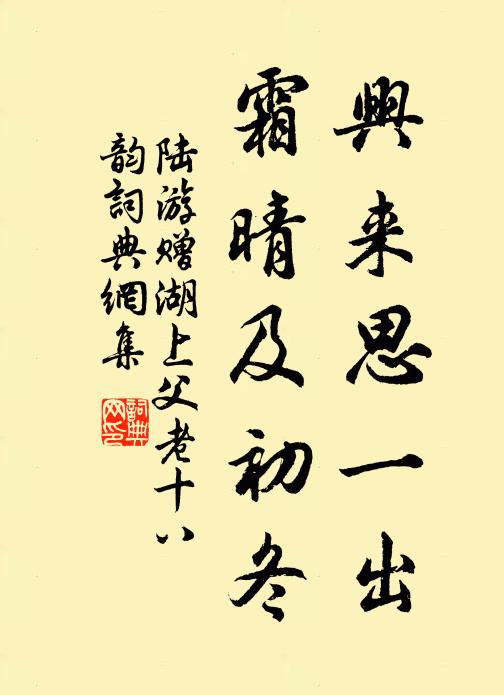 興来思一出
霜晴及初冬
陆游赠湖上父老十八
韵詞典網集
詞典
网印